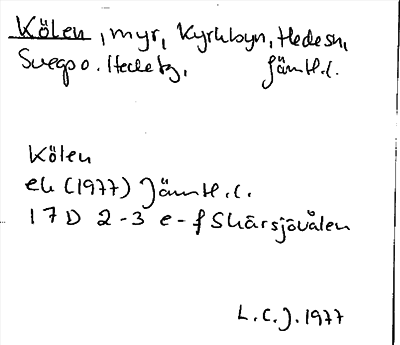 Kölen, myr, Kyrkbyn, Hedesn,
Svegs o. Hede tg, Jämtl.l.
Kölen
ek (1977) Jämtl.l.
17D 2-3 e-f Skärsjövålen
L.C.J. 1977